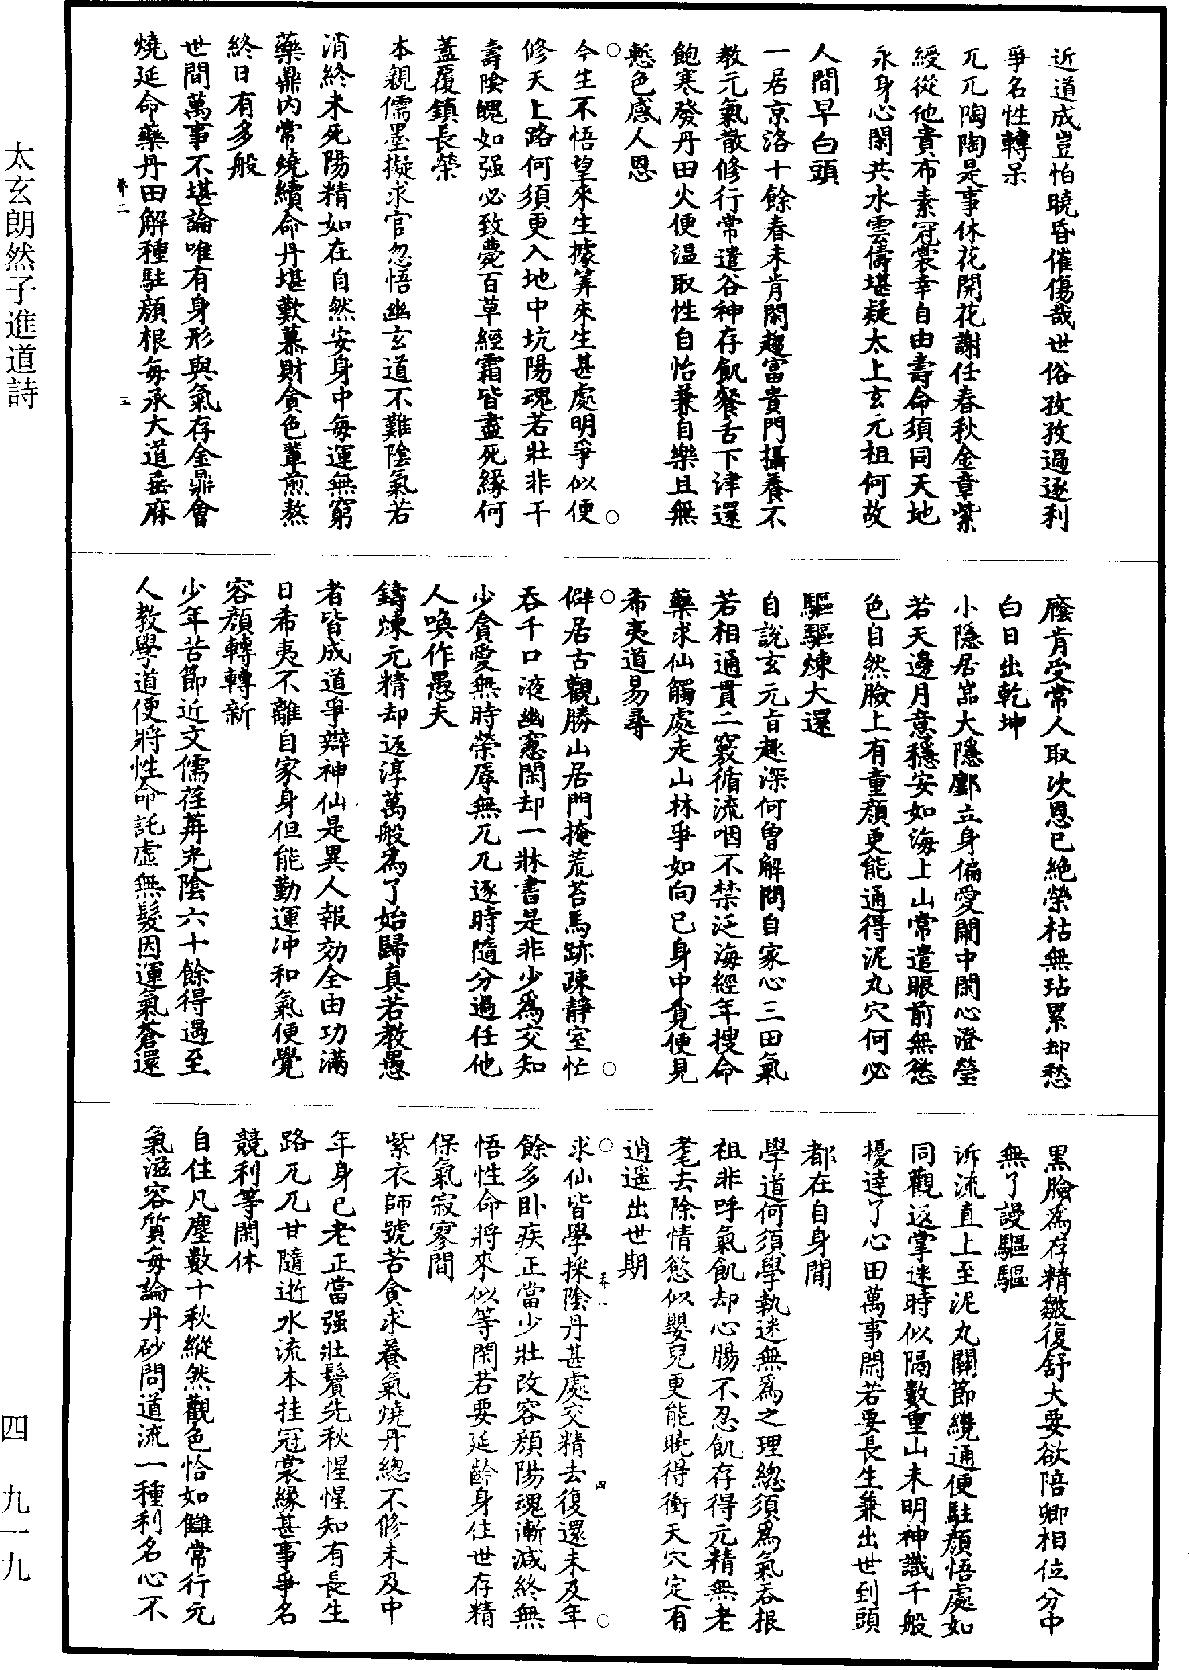 太玄朗然子進道詩
四九一九
近道成豈怕曉昏催傷哉世俗孜孜過逐利
爭名性轉呆
兀兀陶陶是事休花開花謝任春秋金章紫
綬從他貴布素冠裳幸自由壽命須同天地
永身心閑共水雲儔堪疑太上玄元祖何故
人間早白頭
一居京洛十餘春未肯閑趨富貴門攝養不
教元氣散修行常遣谷神存飢餐舌下津還
飽寒發丹田火便溫取性自怡兼自樂且無
慙色感人恩
今生不悟望來生據筭來生甚處明爭似便
修天上路何須更入地中坑陽魂若壯非干
壽陰魄如强必致薨百草經霜皆盡死緣何
蓋覆鎮長榮
本親儒墨擬求官忽悟幽玄道不難陰氣若
消終未死陽精如在自然安身中每運無窮
藥鼎內常燒續命丹堪歎慕財貪色輩煎熬
終日有多般
世間萬事不堪論唯有身形與氣存金鼎會
燒延命藥丹田解種駐顏根每承大道垂庥
廕肯受常人取次恩已絕榮枯無玷累却愁
白日出乾坤
小隱居嵓大隱鄽立身偏愛閙中閑心澄瑩
若天邊月意穩安如海上山常遣眼前無慾
色自然臉上有童顏更能通得泥丸穴何必
驅驅煉大還
自說玄元旨趣深何曾解問自家心三田氣
若相通貫二竅循流咽不禁泛海經年搜命
藥求仙觸處走山林爭如向己身中覓便見
希夷道易尋
僻居古觀勝山居門掩荒苔馬跡疎靜室忙
吞千口液幽窻閑却一牀書是非少爲交知
少貪愛無時榮辱無兀兀逐時隨分過任他
人喚作愚夫
鑄煉元精却返淳萬般爲了始歸真若教愚
者皆成道爭辯神仙是異人報効全由功滿
日希夷不離自家身但能勤運冲和氣便覺
容顏轉轉新
少年苦節近文儒荏苒光陰六十餘得遇至
人教學道便將性命託虛無髮因運氣蒼還
黑臉爲存精皺復舒大要欲陪卿相位分中
無了謾驅驅
泝流直上至泥丸關節纔通便駐顏悟處如
同觀返掌迷時似隔數重山未明神識千般
擾達了心田萬事閑若要長生兼出世到頭
都在自身間
學道何須學執迷無爲之理總須爲氣吞根
祖非呼氣飢却心腸不忍飢存得元精無老
耄去除情慾似嬰兒更能曉得衝天穴定有
逍遥出世期
求仙皆學採陰丹甚處交精去復還未及年
餘多卧疾正當少壯改容顏陽魂漸減終無
悟性命將來似等閑若要延齡身住世存精
保氣寂寥間
紫衣師號苦貪求養氣燒丹總不修未及中
年身已老正當强壯鬢先秋惺惺知有長生
路兀兀甘隨逝水流本挂冠裳緣甚事爭名
競利等閑休
自住凡塵數十秋縱然觀色恰如讎常行元
氣滋容質每論丹砂問道流一種利名心不